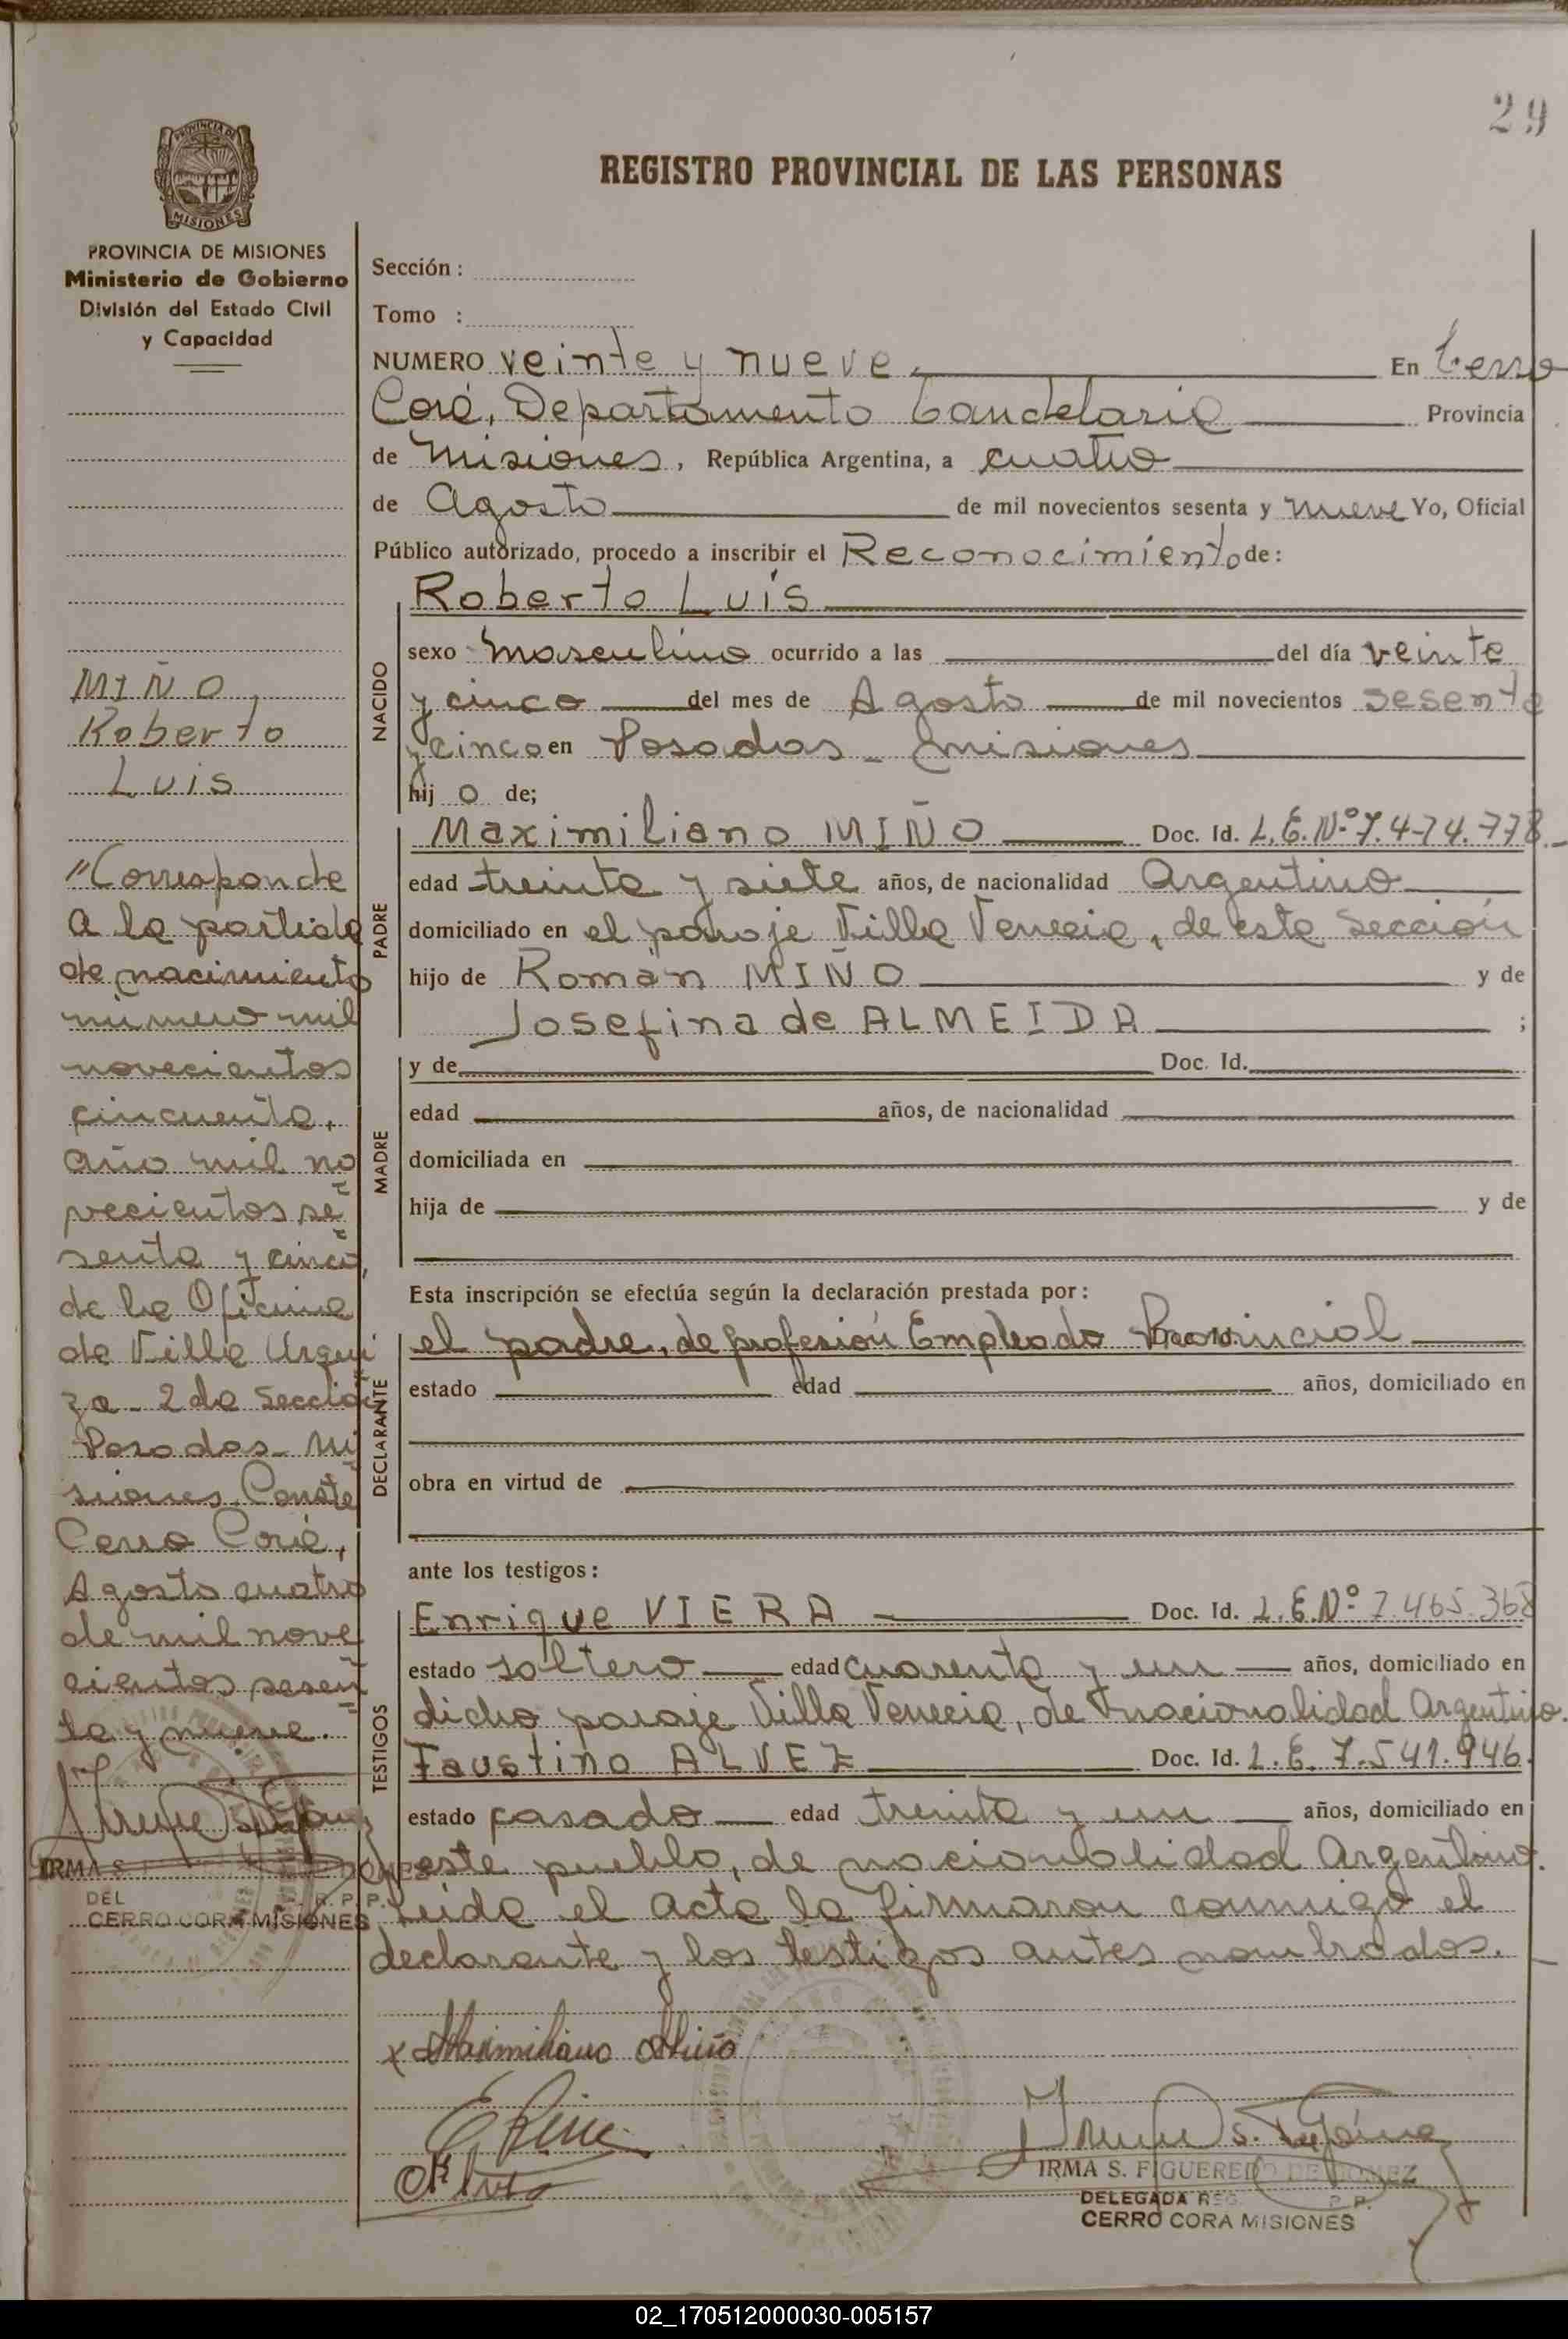 29
REGISTRO PROVINCIAL DE LAS PERSONAS
PROVINCIA DE
MISIONES
PROVINCIA DE MISIONES
Ministerio de Gobierno
División del Estado Civil
y Capacidad
MIÑO,
Roberto
Luis
"Corresponde
a la partida
de nacimiento
número mil
novecientos
cincuenta,
año mil no
vecientos se
senta y cinco,
de la Oficina
de Villa Urqui
za - 2da Sección
Posadas - Mi
siones. Conste
Cerro Corá,
Agosto cuatro
de mil nove
cientos sesen
ta y nueve.
IRMA S.
DEL R. P. P.
CERRO CORA MISIONES
Sección :
Tomo :
NUMERO veinte y nueve. En Cerro
Corá, Departamento Candelaria Provincia
de Misiones, República Argentina, a cuatro
de Agosto de mil novecientos sesenta y nueve Yo, Oficial
Público autorizado, procedo a inscribir el Reconocimiento de:
NACIDO
Roberto Luis
sexo masculino ocurrido a las del día veinte
y cinco del mes de Agosto de mil novecientos sesenta
y cinco en Posadas - Misiones
hij o de;
PADRE
Maximiliano MIÑO Doc. Id. L.E.Nº 7.474.778.-
edad treinta y siete años, de nacionalidad Argentino
domiciliado en el paraje Villa Venecia, de esta Sección
hijo de Román MIÑO y de
Josefina de ALMEIDA ;
MADRE
y de Doc. Id.
edad años, de nacionalidad
domiciliada en
hija de y de
Esta inscripción se efectúa según la declaración prestada por:
DECLARANTE
el padre, de profesión Empleado Provincial
estado edad años, domiciliado en
obra en virtud de
ante los testigos:
TESTIGOS
Enrique VIERA Doc. Id. L.E.Nº 7.465.368
estado soltero edad cuarenta y un años, domiciliado en
dicho paraje Villa Venecia, de nacionalidad Argentino.
Faustino ALVEZ Doc. Id. L.E. 7.541.946.
estado casado edad treinta y un años, domiciliado en
este pueblo, de nacionalidad Argentino.
Leida el acta la firmaron conmigo el
declarante y los testigos antes nombrados.
x Maximiliano Miño
IRMA S. FIGUEREDO DE GOMEZ
DELEGADA REG. P. P.
CERRO CORA MISIONES
02_170512000030-005157